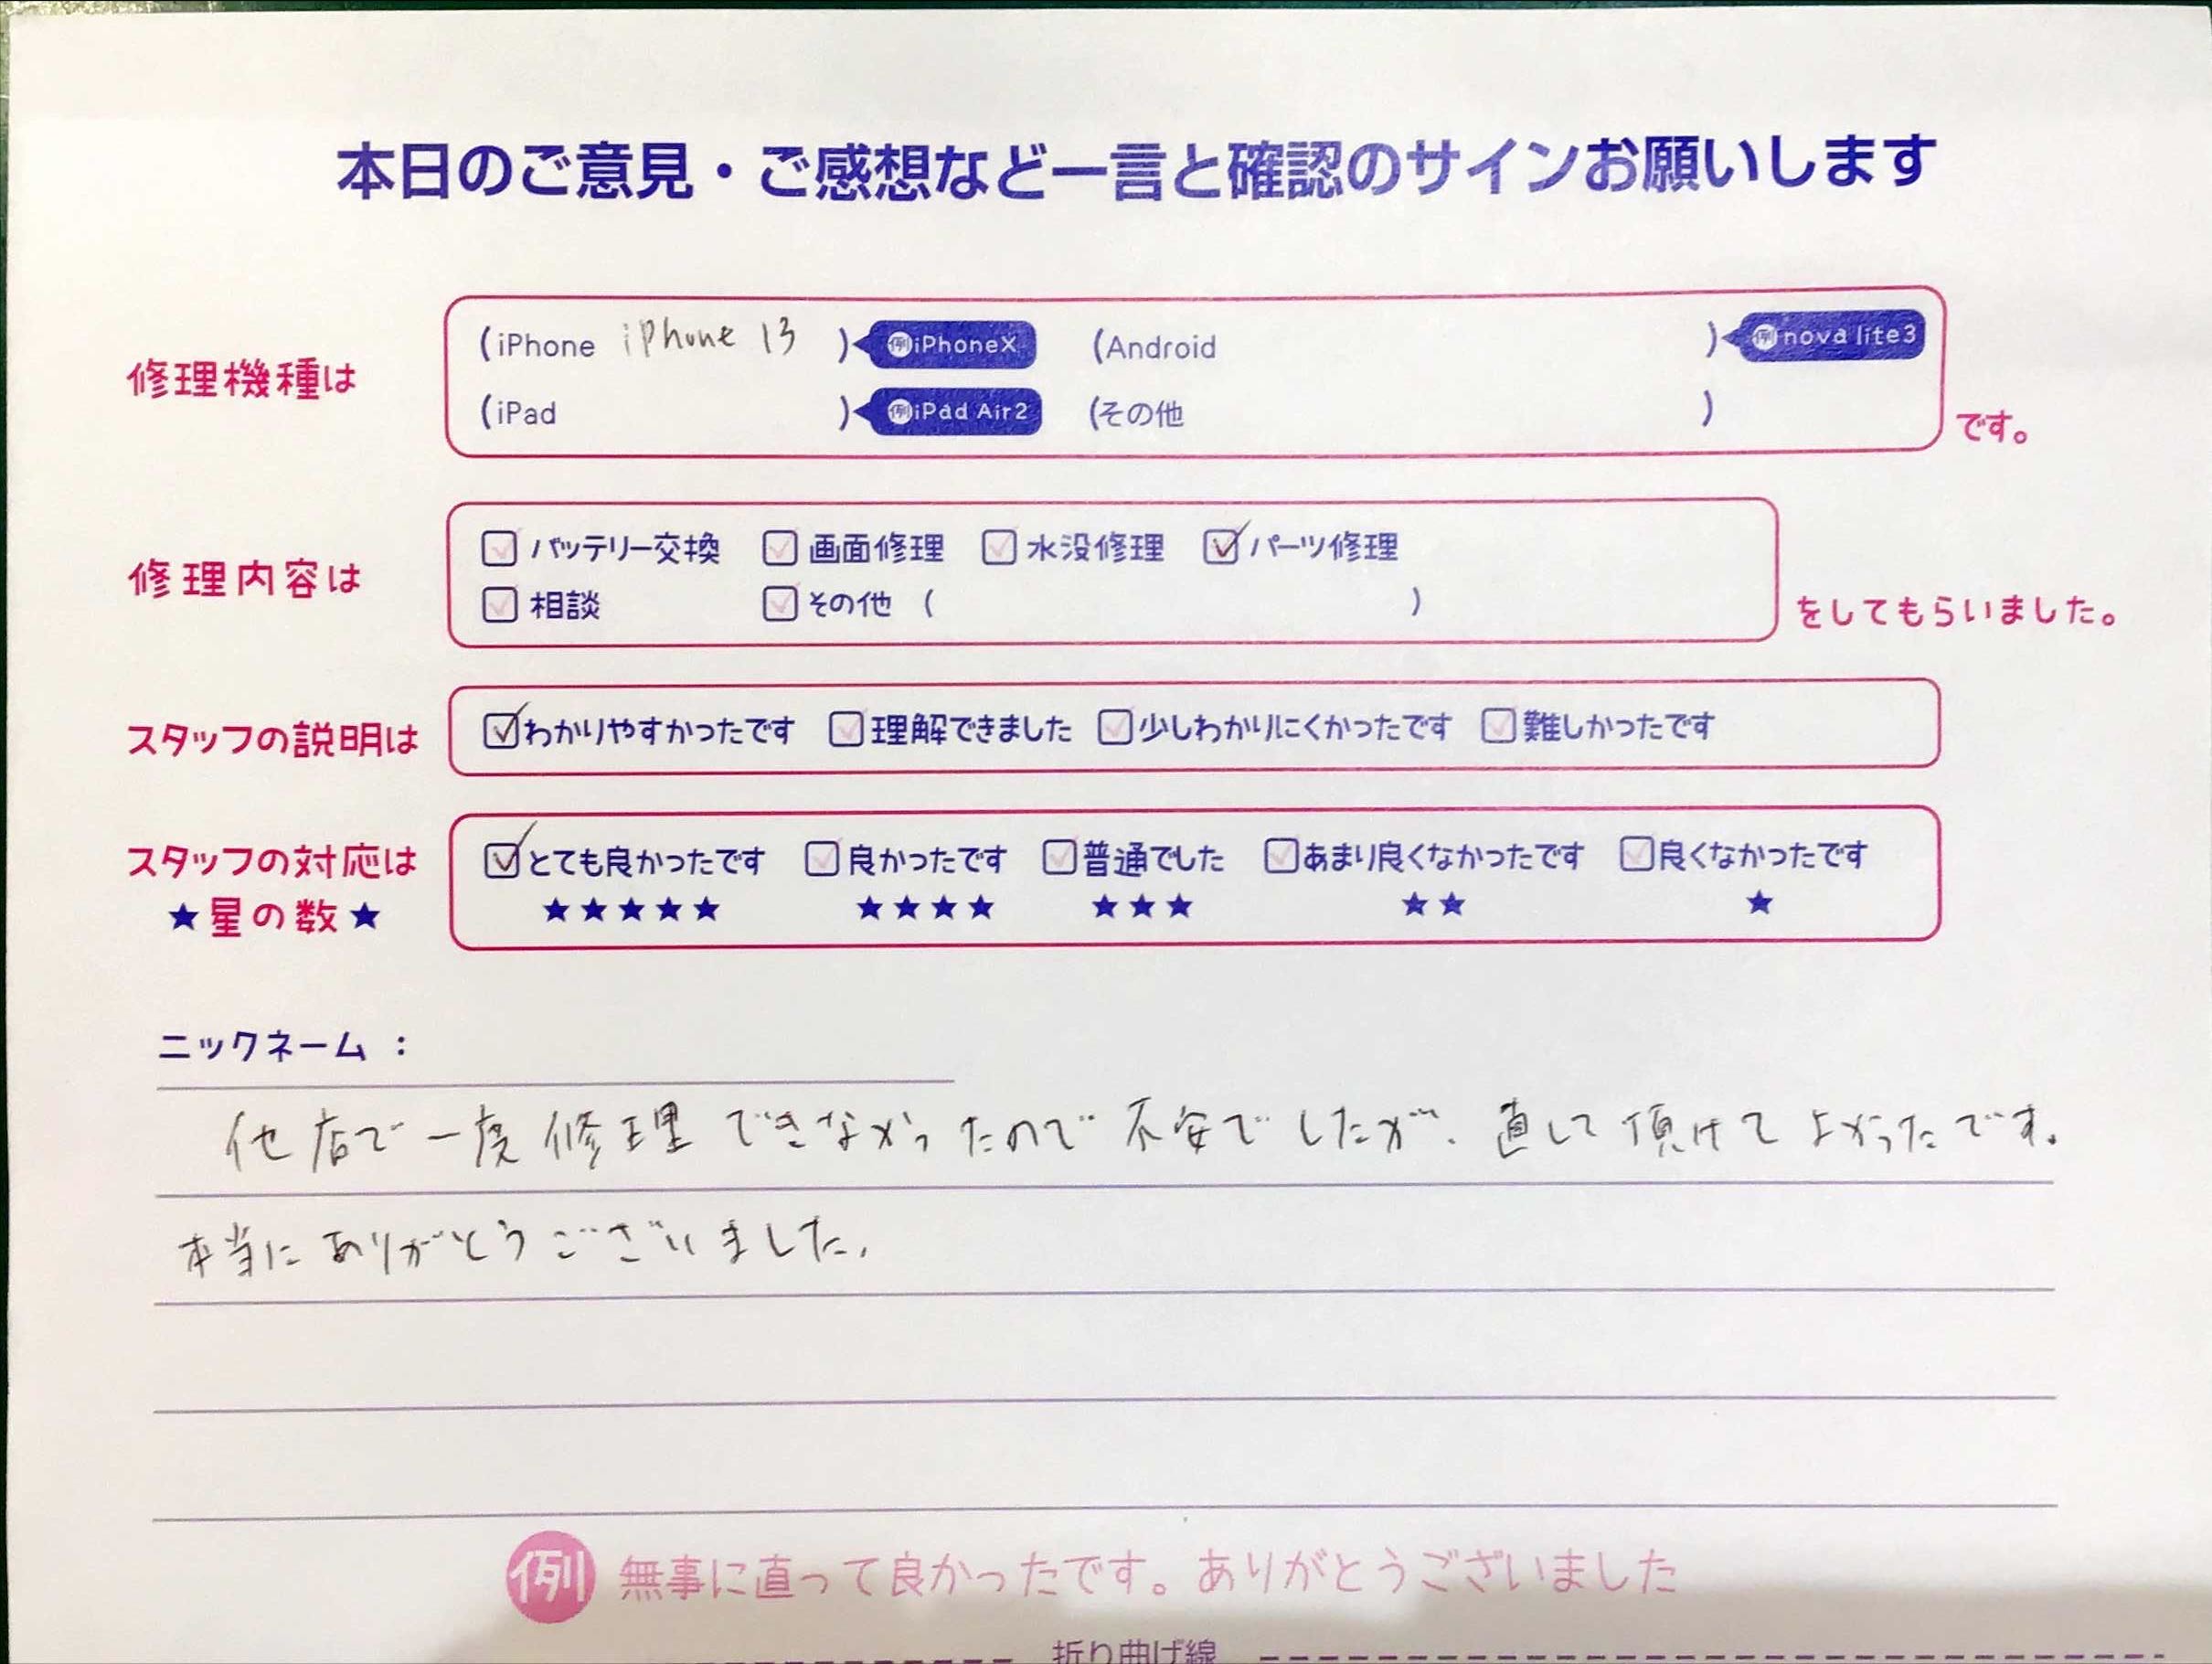 本日のご意見・ご感想など一言と確認のサインお願いします
修理機種は
(iPhone iPhone 13 ) 例iPhoneX (Android ) 例nova lite3
(iPad ) 例iPad Air2 (その他 ) です。
修理内容は
バッテリー交換 画面修理 水没修理 パーツ修理
相談 その他 ( ) をしてもらいました。
スタッフの説明は わかりやすかったです 理解できました 少しわかりにくかったです 難しかったです
スタッフの対応は とても良かったです 良かったです 普通でした あまり良くなかったです 良くなかったです
★星の数★ ★★★★★ ★★★★ ★★★ ★★ ★
ニックネーム：
他店で一度修理できなかったので不安でしたが、直して頂けてよかったです。
本当にありがとうございました。
例 無事に直って良かったです。ありがとうございました
折り曲げ線